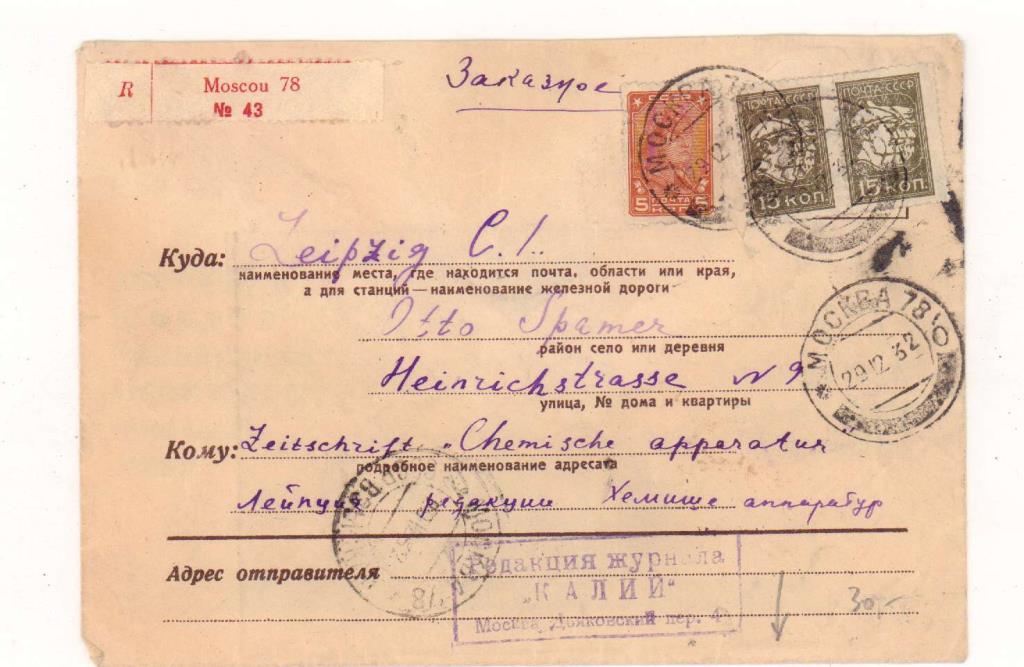 R Moscou 78
№ 43
Заказное
СССР
5 ПОЧТА 5
КОП.
ПОЧТА·СССР
15 КОП.
ПОЧТА·СССР
15 КОП.
МОСКВА 78
29 12
Куда: Leipzig C. 1.
наименование места, где находится почта, области или края,
а для станций — наименование железной дороги
Otto Spamer
район село или деревня
Heinrichstrasse N 9
улица, № дома и квартиры
МОСКВА 78 'О
29 12 32
Кому: Zeitschrift „Chemische apparatur"
подробное наименование адресата
Лейпциг редакции Хемише аппаратур
Адрес отправителя
Редакция журнала
„КАЛИЙ"
Москва, пер. 4
30-